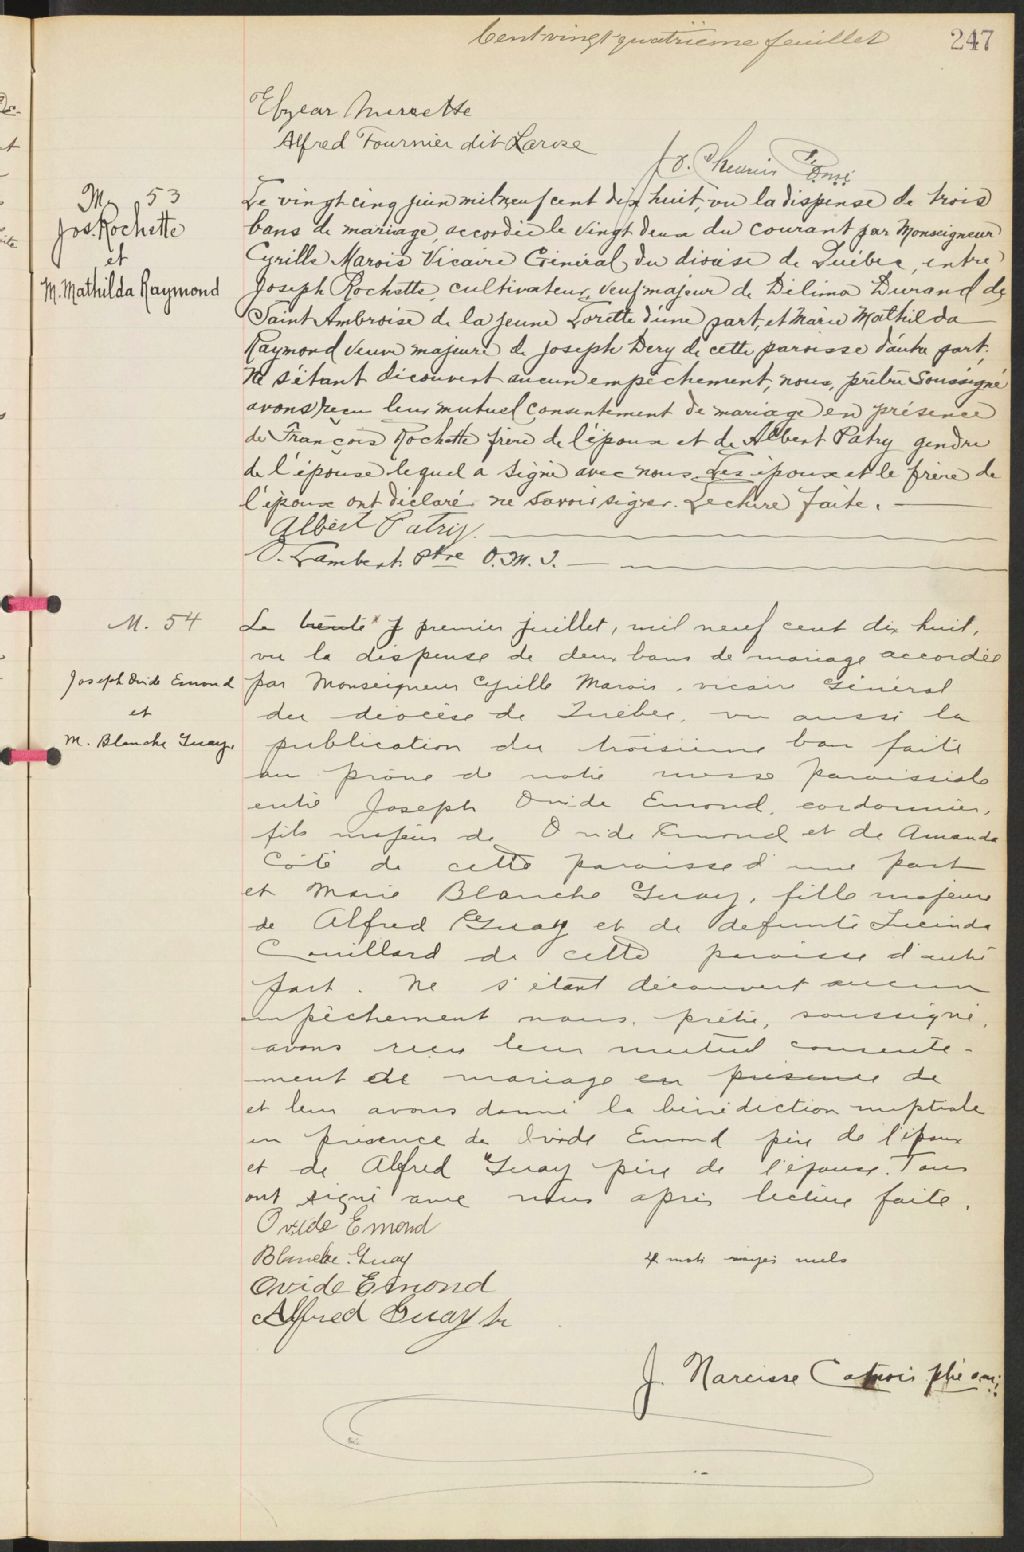 Cent vingt quatrième feuillet 247
Elzear Mercette
Alfred Fournier dit Larose
M. 53
Jos. Rochette
et
M. Mathilda Raymond
Le vingt cinq juin mil neuf cent dix huit, vu la dispense de trois
bans de mariage accordée le vingt deux du courant par Monseigneur
Cyrille Marois Vicaire Général du diocèse de Québec, entre
Joseph Rochette, cultivateur, veuf majeur de Délima Durand de
Saint Ambroise de la jeune Lorette d'une part, et Marie Mathilda
Raymond veuve majeure de Joseph Dery de cette paroisse d'autre part.
Ne s'étant découvert aucun empêchement, nous, prêtre soussigné
avons reçu leur mutuel consentement de mariage en présence
de François Rochette frère de l'époux et de Albert Patry gendre
de l'épouse lequel a signé avec nous. Les époux et le frère de
l'époux ont déclaré ne savoir signer. Lecture faite.
Albert Patry.
O. Lambert. Ptre O.M.I.
M. 54
Joseph Ovide Emond
et
M. Blanche Guay.
Le trente x j premier juillet, mil neuf cent dix huit,
vu la dispense de deux bans de mariage accordée
par Monseigneur Cyrille Marois, vicaire Général
du diocèse de Québec, vu aussi la
publication du troisième ban faite
au prône de notre messe paroissiale
entre Joseph Ovide Emond, cordonnier,
fils majeur de Ovide Emond et de Amanda
Côté de cette paroisse d'une part
et Marie Blanche Guay, fille majeure
de Alfred Guay et de defunte Lucinda
Couillard de cette paroisse d'autre
part. Ne s'étant découvert aucun
empêchement nous, prêtre, soussigné,
avons reçu leur mutuel consente-
ment de mariage en présence de
et leur avons donné la bénédiction nuptiale
en présence de Ovide Emond père de l'époux
et de Alfred Guay père de l'épouse. Tous
ont signé avec nous après lecture faite.
Ovide Emond
Blanche Guay
4 mots rayés nuls
Ovide Emond
Alfred Guay
J. Narcisse Ptre o.m.i.